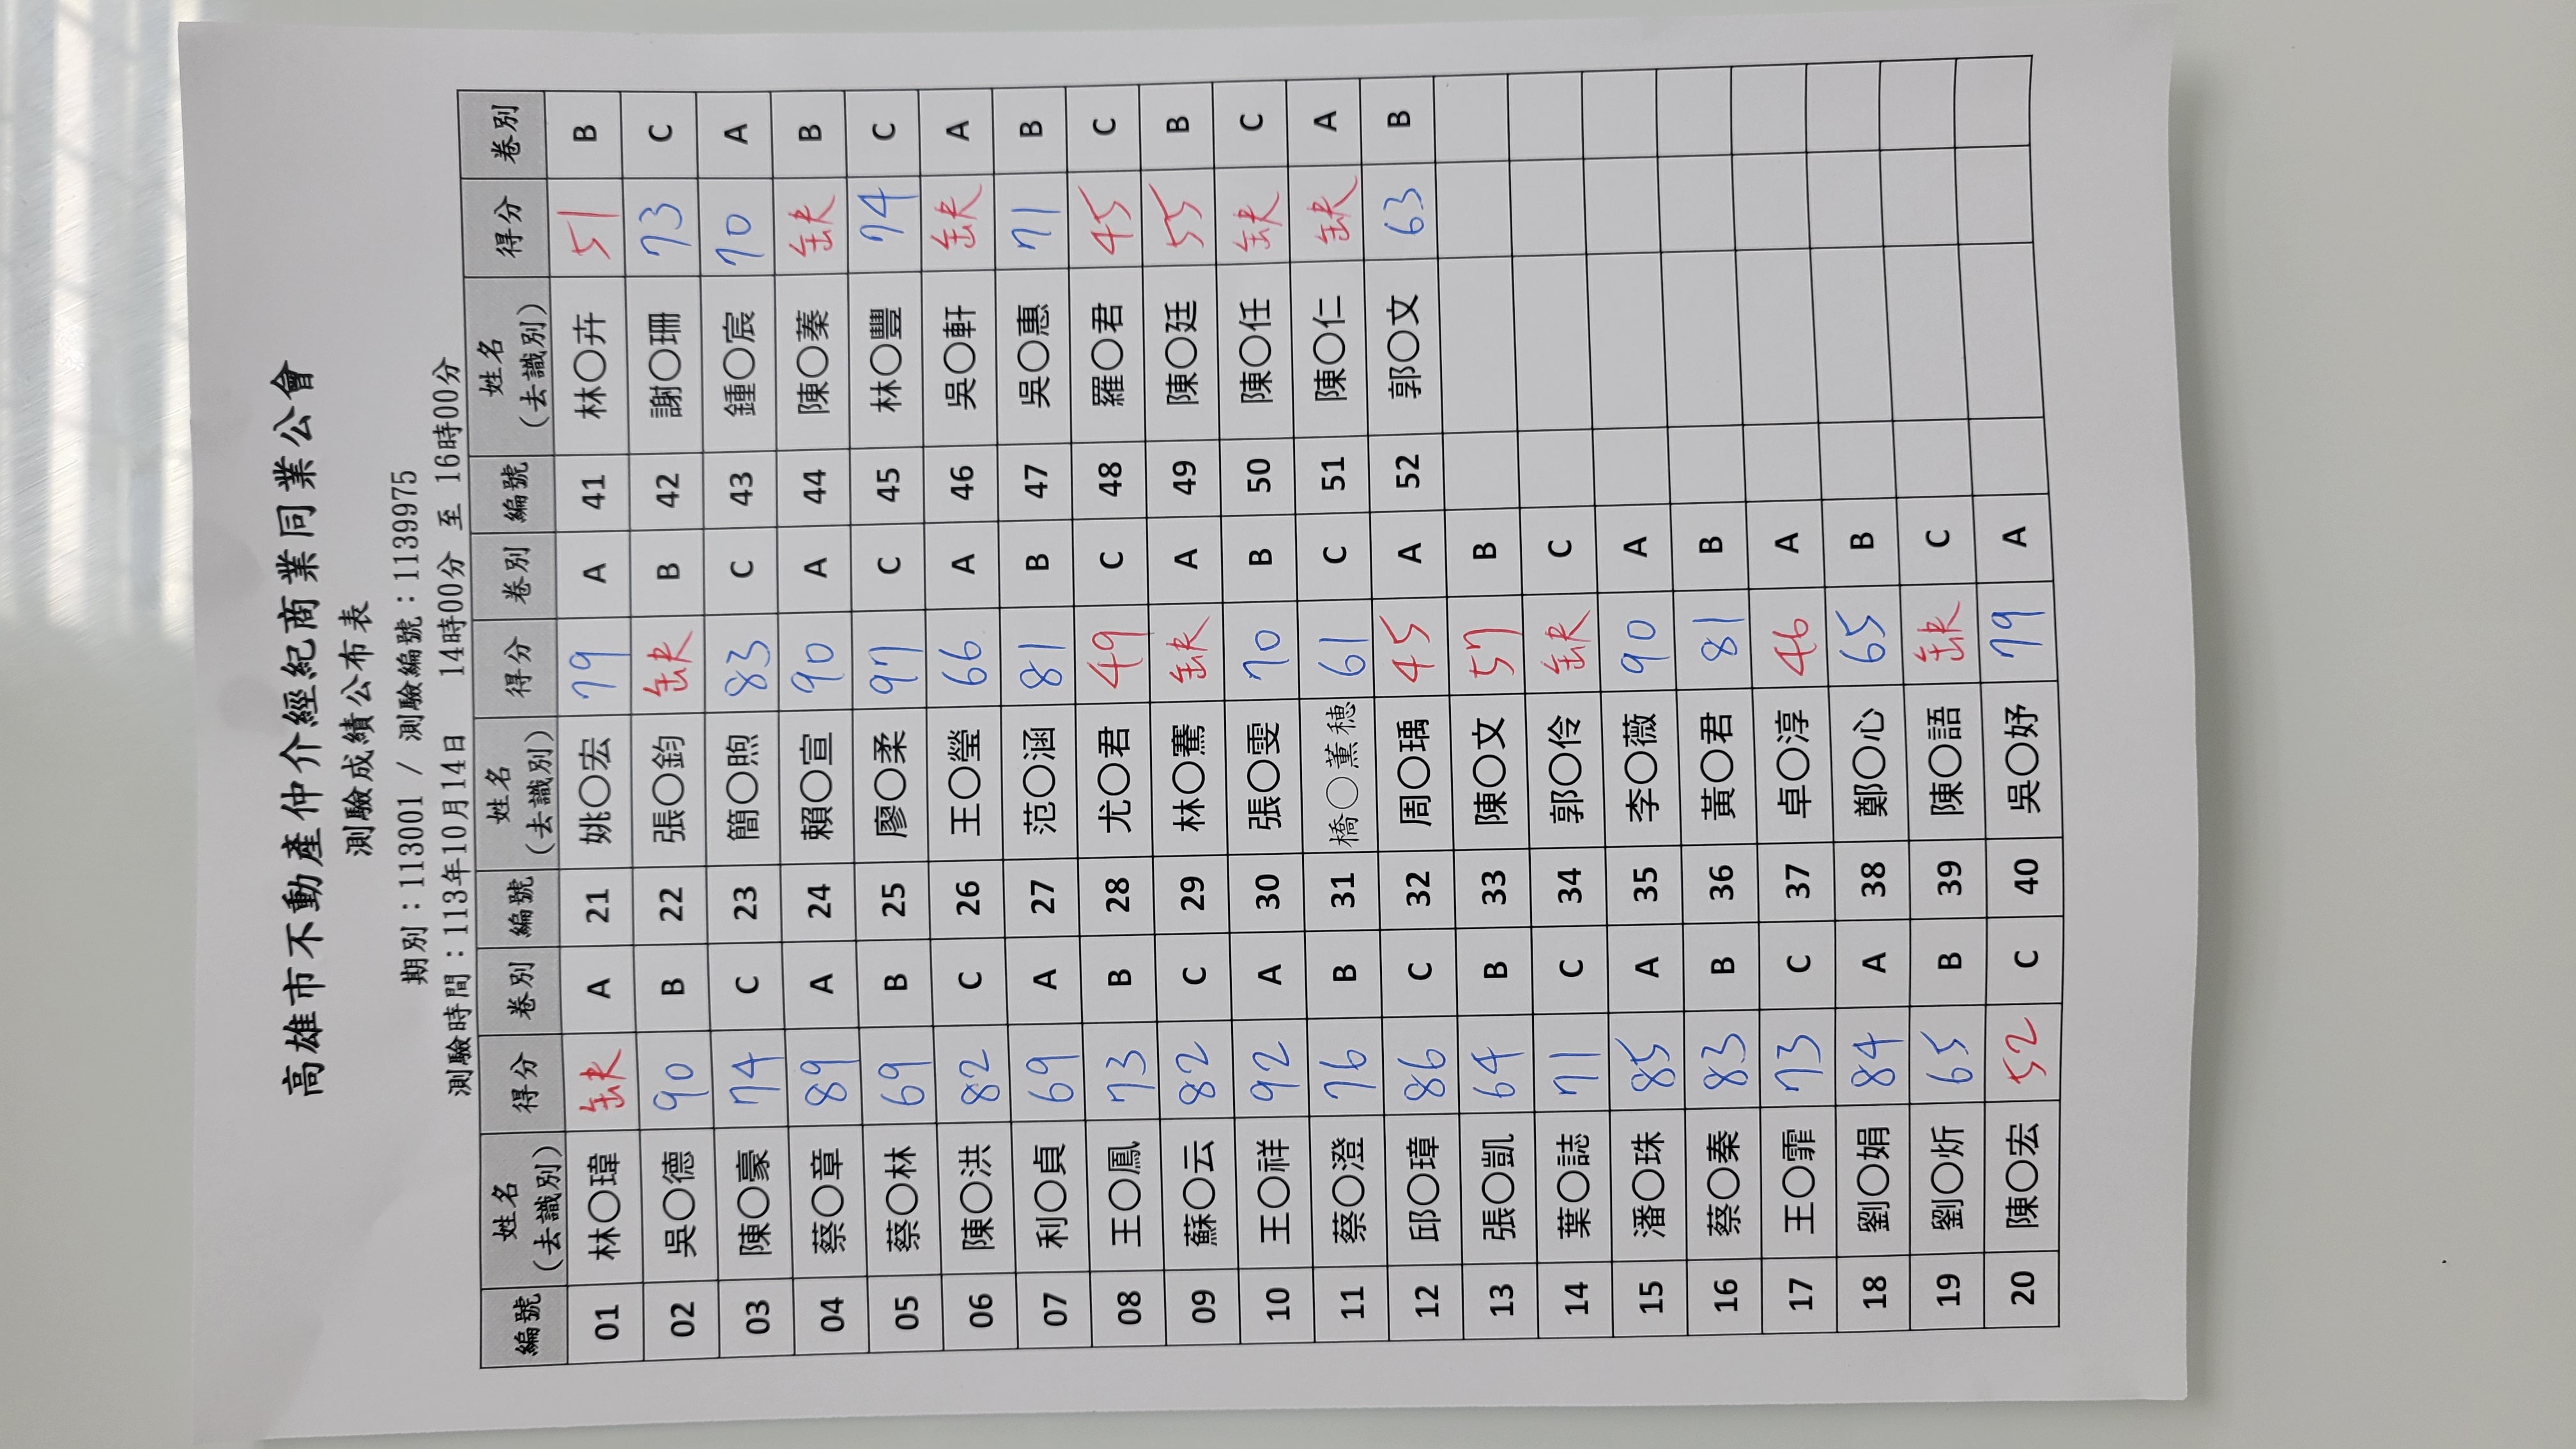 高雄市不動產仲介經紀商業同業公會
測驗成績公布表
期別：113001 / 測驗編號：1139975
測驗時間：113年10月14日 14時00分 至 16時00分
編號 姓名(去識別) 得分 卷別 編號 姓名(去識別) 得分 卷別 編號 姓名(去識別) 得分 卷別
01 林〇瑋 缺 A 21 姚〇宏 79 A 41 林〇卉 51 B
02 吳〇德 90 B 22 張〇鈞 缺 B 42 謝〇珊 73 C
03 陳〇豪 74 C 23 簡〇煦 83 C 43 鍾〇宸 70 A
04 蔡〇章 89 A 24 賴〇宣 90 A 44 陳〇蓁 缺 B
05 蔡〇林 69 B 25 廖〇柔 97 C 45 林〇豐 74 C
06 陳〇洪 82 C 26 王〇瑩 66 A 46 吳〇軒 缺 A
07 利〇貞 69 A 27 范〇涵 81 B 47 吳〇惠 71 B
08 王〇鳳 73 B 28 尤〇君 49 C 48 羅〇君 45 C
09 蘇〇云 82 C 29 林〇騫 缺 A 49 陳〇廷 55 B
10 王〇祥 92 A 30 張〇雯 70 B 50 陳〇任 缺 C
11 蔡〇澄 76 B 31 橋〇薰穂 61 C 51 陳〇仁 缺 A
12 邱〇璋 86 C 32 周〇瑀 45 A 52 郭〇文 63 B
13 張〇凱 64 B 33 陳〇文 57 B
14 葉〇誌 71 C 34 郭〇伶 缺 C
15 潘〇珠 85 A 35 李〇薇 90 A
16 蔡〇秦 83 B 36 黃〇君 81 B
17 王〇霏 73 C 37 卓〇淳 46 A
18 劉〇娟 84 A 38 鄭〇心 65 B
19 劉〇炘 65 B 39 陳〇語 缺 C
20 陳〇宏 52 C 40 吳〇妤 79 A